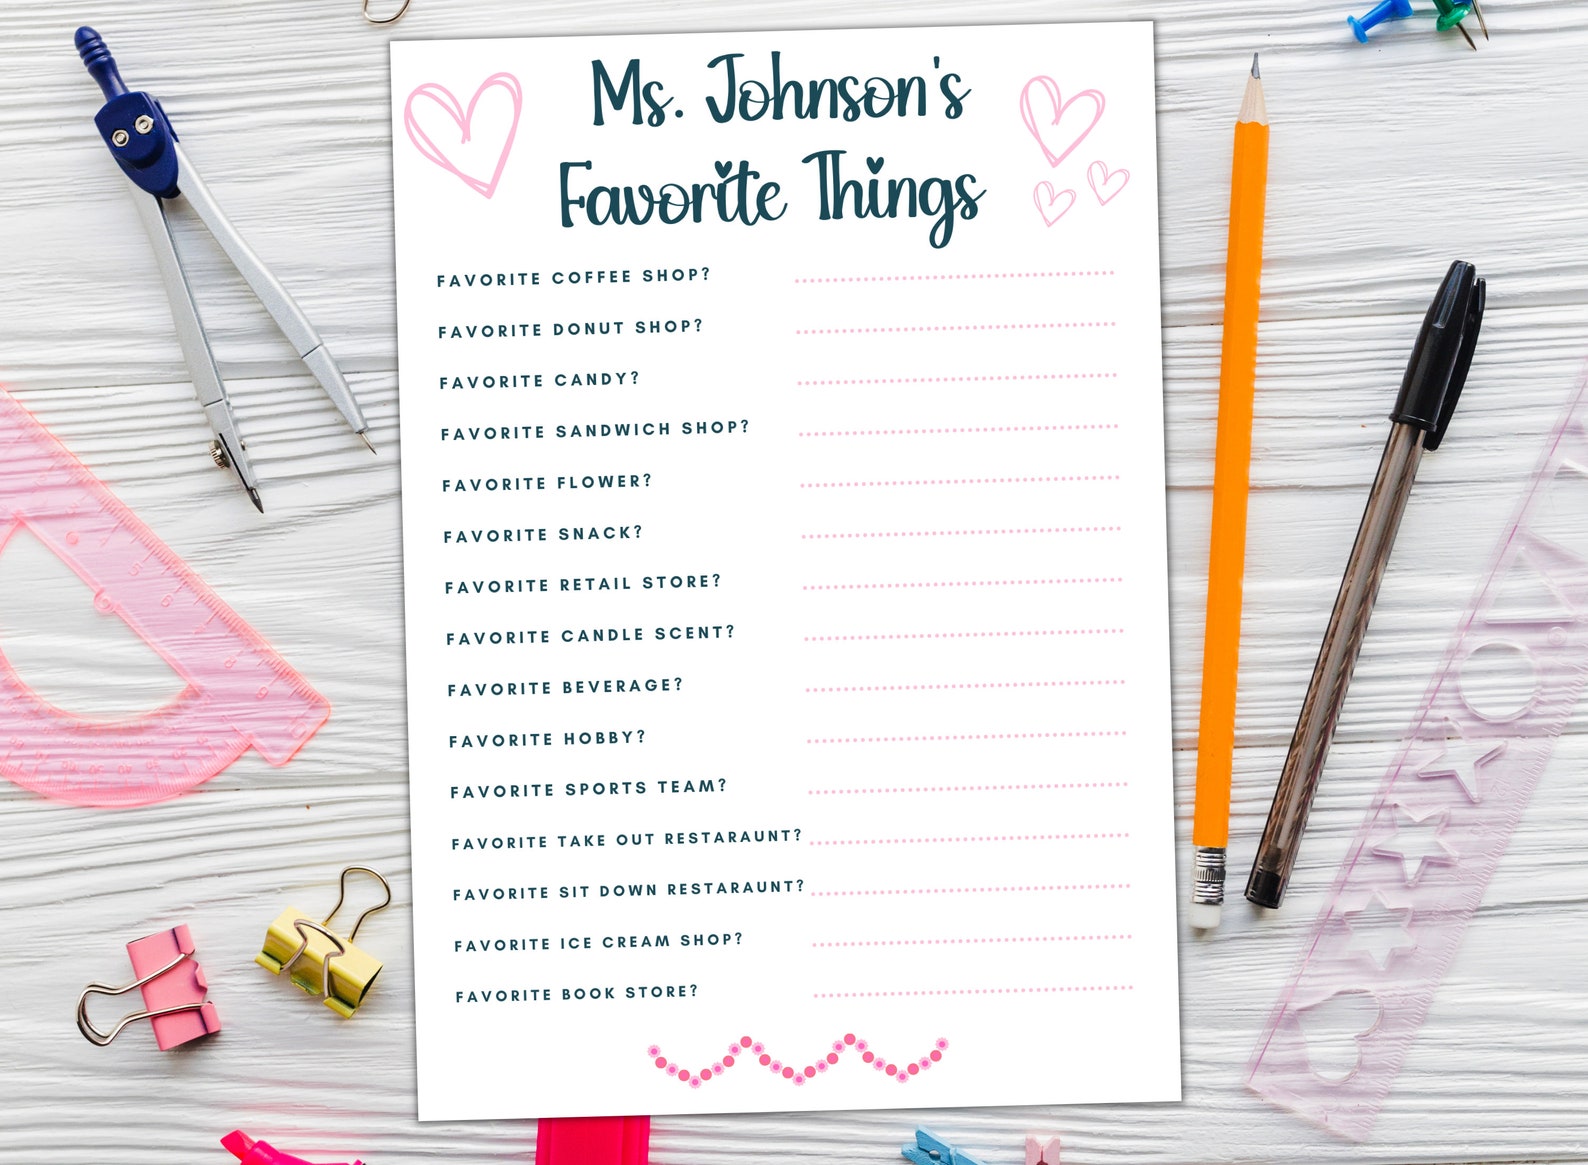 Ms. Johnson's
Favorite Things
FAVORITE COFFEE SHOP?
FAVORITE DONUT SHOP?
FAVORITE CANDY?
FAVORITE SANDWICH SHOP?
FAVORITE FLOWER?
FAVORITE SNACK?
FAVORITE RETAIL STORE?
FAVORITE CANDLE SCENT?
FAVORITE BEVERAGE?
FAVORITE HOBBY?
FAVORITE SPORTS TEAM?
FAVORITE TAKE OUT RESTARAUNT?
FAVORITE SIT DOWN RESTARAUNT?
FAVORITE ICE CREAM SHOP?
FAVORITE BOOK STORE?